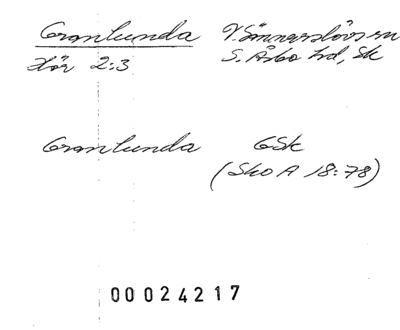 Granlunda V. Sönnarslövs sn
Hör 2:3 S. Åsbo hd, Sk
Granlunda GSk
(SkoA 18:78)
00024217